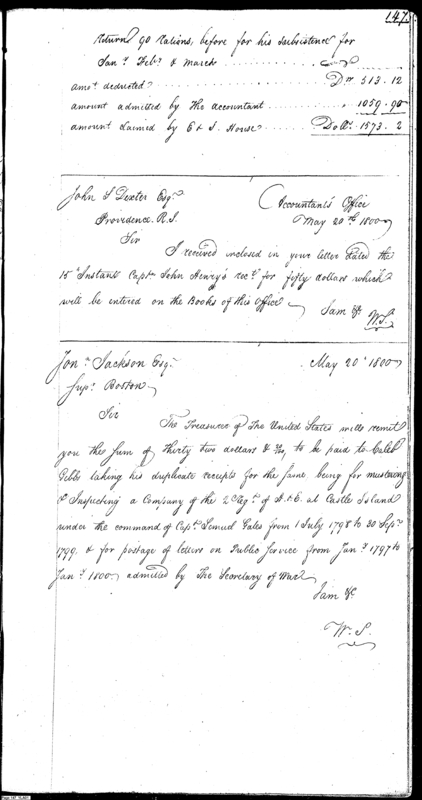 147
return 90 Rations, before for his subsistence for
Jany Feby & March
amot deducted Drs 513.12
amount admitted by the accountant 1059.90
amount claimed by E & S. House Dolls 1573.2
John S Dexter Esqr Accountants Office
Providence. R.I. May 20th 1800
Sir
I received inclosed in your letter dated the
15th Instant Captn John Henry's rect for fifty dollars which
will be entered on the Books of this Office
I am &c W.S.
Jonn Jackson Esqr May 20th 1800
Supr Boston
Sir
The Treasurer of The United States will remit
you the sum of thirty two dollars & to be paid to Caleb
Gibbs taking his duplicate receipts for the same being for mustering
& Inspecting a Company of the 2 Regt of A & E. at Castle Island
under the command of Capt Lemuel Gates from 1 July 1798 to 30 Sepr
1799, & for postage of letters on Public Service from Jany 1797 to
Jany 1800 admitted by The Secretary of War
I am &c
Wm S.